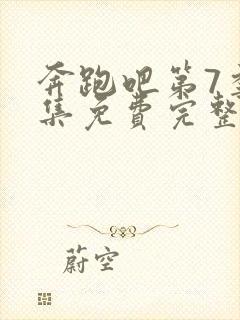 奔跑吧第7季
集免费完整
蔚空